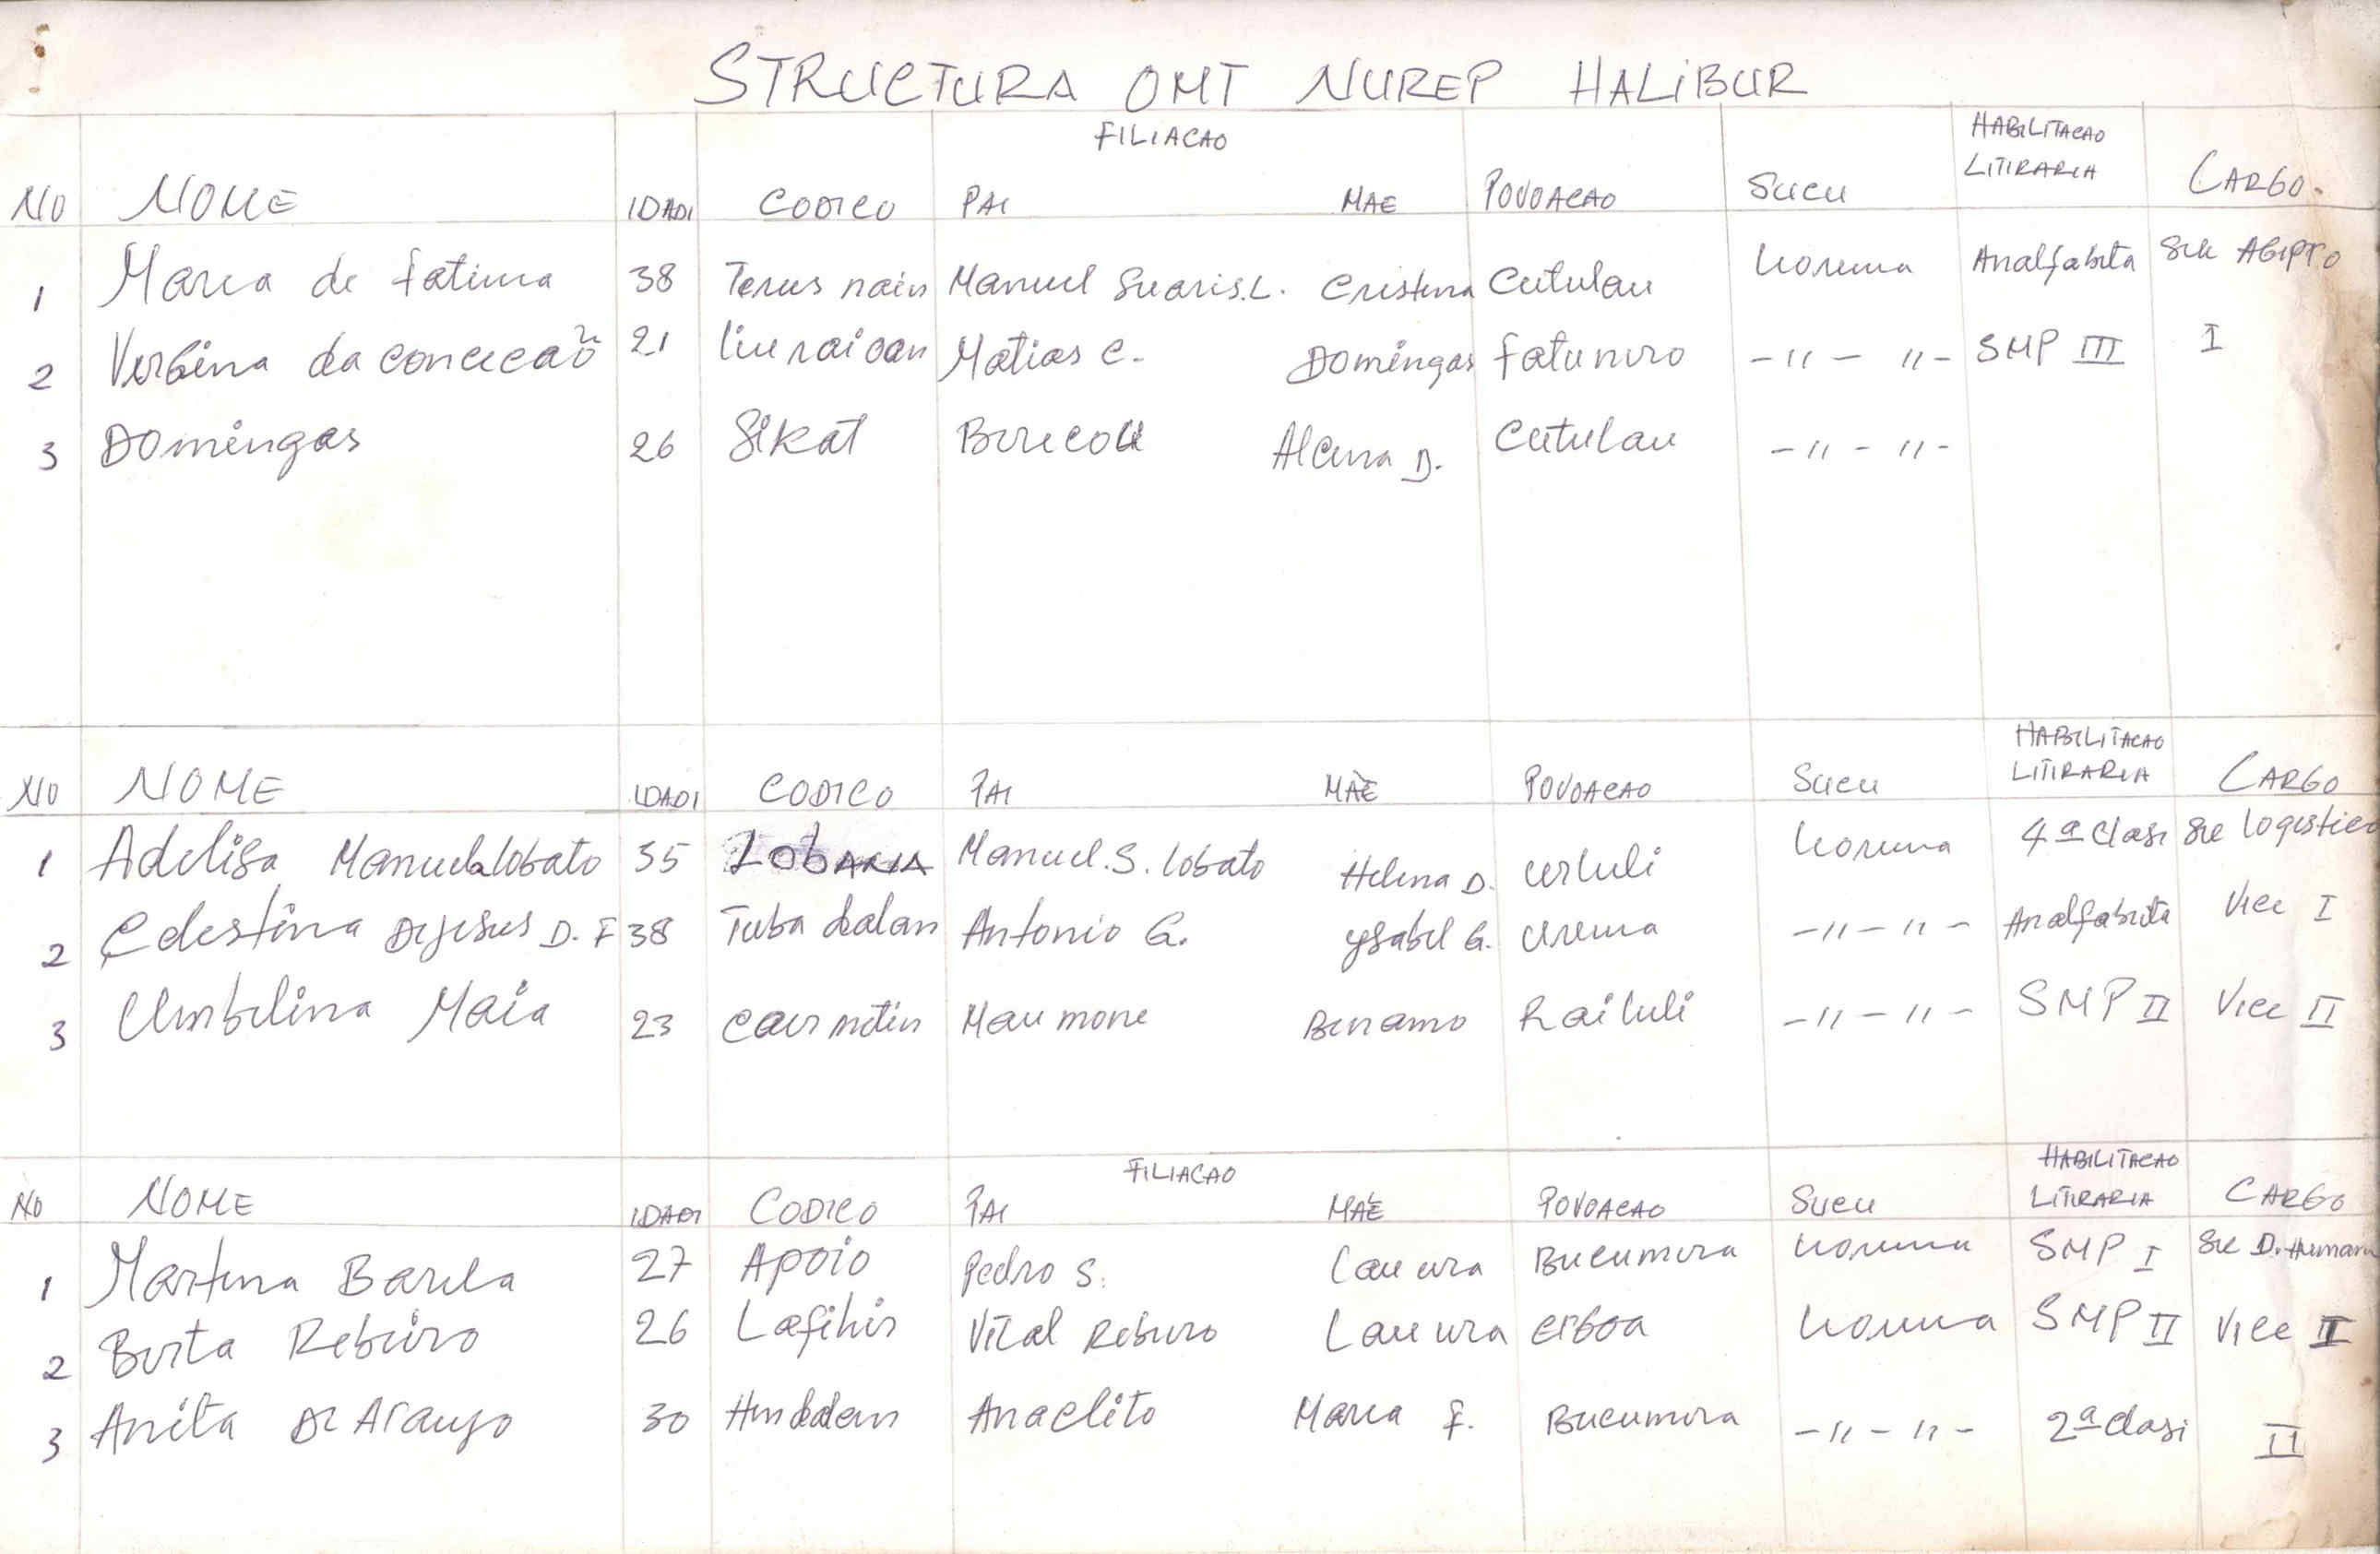 STRUCTURA OMT NUREP HALIBUR
FILIACAO
NO NOME IDADI CODICO PAI MAE POVOACAO SUCU HABILITACAO LITIRARIA CARGO.
1 Maria de fatima 38 Terus nain Manuel Suaris.L. Cristina Cutulau Leorema Analfabita Sek AGIPTO
2 Verbina da conceicaõ 21 liurai oan Matias C. Domingas fatunero -"- "- SMP III I
3 Domingas 26 Sikat Berecou Alcina D. Cutulau -"-"-
NO NOME IDADI CODICO PAI MAE POVOACAO SUCU HABILITACAO LITIRARIA CARGO
1 Adelisa Manuela lobato 35 LOBARIA Manuel.S. lobato Helena D. Leorema 4ª clasi Logistica
2 Celestina Dejesus D. F 38 Tuba dalan Antonio G. Ysabel G. -"-"- Analfabeta Vice I
3 Umbelina Maia 23 Maumone Binamo Railuli -"-"- SMP II Vice II
FILIACAO
NO NOME IDADI CODICO PAI MAE POVOACAO SUCU HABILITACAO LITIRARIA CARGO
1 Martina Barela 27 Apoio Pedro S. Bucumera Leorema SMP I D. Humani
2 Berta Rebeiro 26 Lafihir Vital Rebero Erboa Leorema SMP II Vice I
3 Anita De Araujo 30 Hindalan Anaclito Maria F. Bucumera -"-"- 2ª clasi II